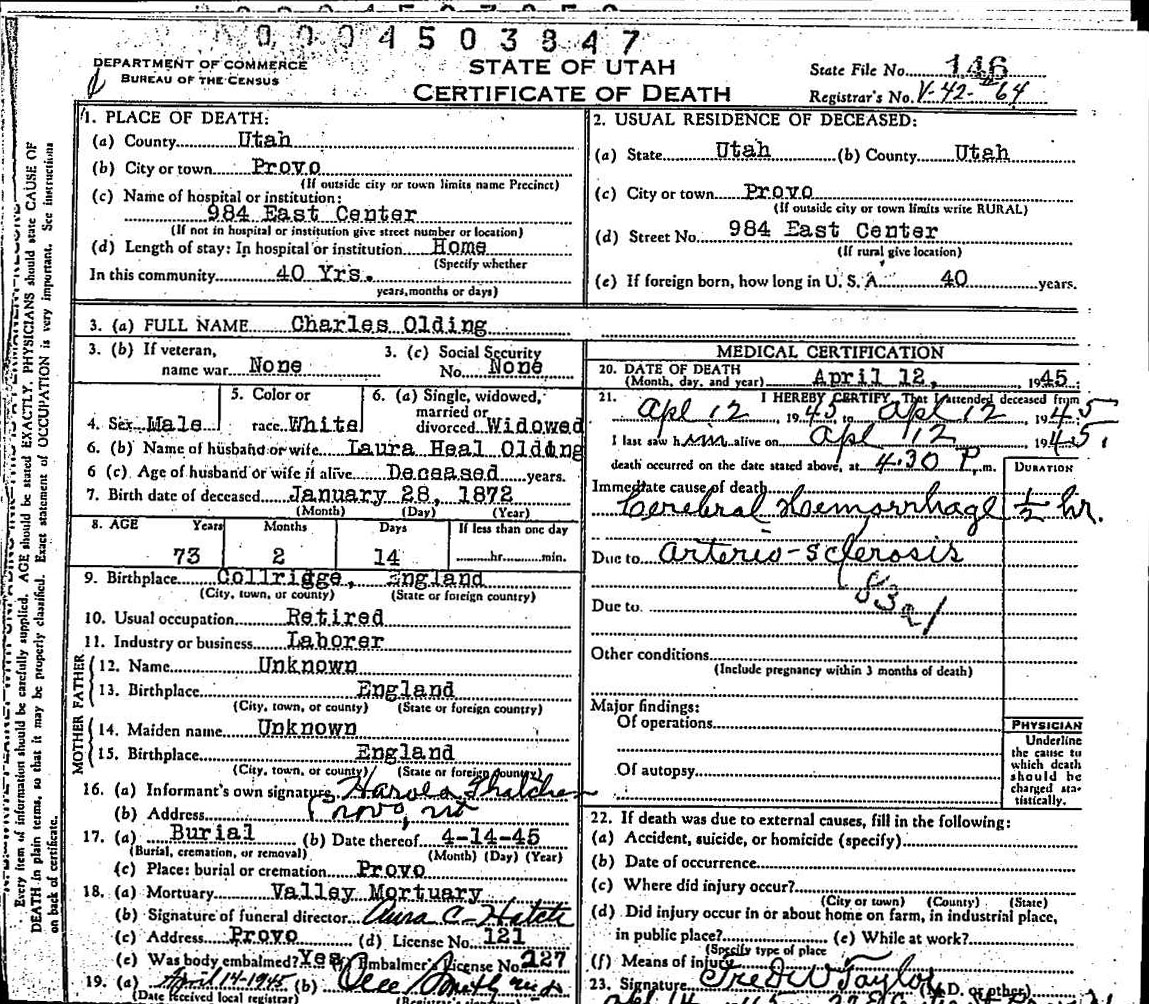 0004503847
DEPARTMENT OF COMMERCE
BUREAU OF THE CENSUS
STATE OF UTAH
CERTIFICATE OF DEATH
State File No. 146
Registrar's No. V-42- 64
Every item of information should be carefully supplied. AGE should be stated EXACTLY. PHYSICIANS should state CAUSE OF
DEATH in plain terms, so that it may be properly classified. Exact statement of OCCUPATION is very important. See instructions
on back of certificate.
1. PLACE OF DEATH:
(a) County Utah
(b) City or town Provo
(If outside city or town limits name Precinct)
(c) Name of hospital or institution:
984 East Center
(If not in hospital or institution give street number or location)
(d) Length of stay: In hospital or institution Home
(Specify whether
In this community 40 Yrs.
years, months or days)
2. USUAL RESIDENCE OF DECEASED:
(a) State Utah (b) County Utah
(c) City or town Provo
(If outside city or town limits write RURAL)
(d) Street No. 984 East Center
(If rural give location)
(e) If foreign born, how long in U. S. A. 40 years.
3. (a) FULL NAME Charles Olding
3. (b) If veteran, name war None
3. (c) Social Security No. None
4. Sex Male
5. Color or race White
6. (a) Single, widowed, married or divorced Widowed
6. (b) Name of husband or wife Laura Heal Olding
6 (c) Age of husband or wife if alive Deceased years.
7. Birth date of deceased January 28, 1872
(Month) (Day) (Year)
8. AGE Years Months Days If less than one day
73 2 14 hr. min.
9. Birthplace Collridge, England
(City, town, or county) (State or foreign country)
10. Usual occupation Retired
11. Industry or business Laborer
FATHER
12. Name Unknown
13. Birthplace England
(City, town, or county) (State or foreign country)
MOTHER
14. Maiden name Unknown
15. Birthplace England
(City, town, or county) (State or foreign country)
16. (a) Informant's own signature Harold Thatcher
(b) Address Provo, Ut
17. (a) Burial (b) Date thereof 4-14-45
(Burial, cremation, or removal) (Month) (Day) (Year)
(c) Place: burial or cremation Provo
18. (a) Mortuary Valley Mortuary
(b) Signature of funeral director C. Hatch
(c) Address Provo (d) License No. 121
(e) Was body embalmed? Yes (f) Embalmer's License No. 127
19. (a) April 14-1945 (b)
(Date received local registrar)
MEDICAL CERTIFICATION
20. DATE OF DEATH
(Month, day, and year) April 12, 1945.
21. I HEREBY CERTIFY, That I attended deceased from
Apl 12, 1945 to Apl 12, 1945
I last saw him alive on Apl 12 1945.
death occurred on the date stated above, at 4:30 P. m.
DURATION
Immediate cause of death
Cerebral Hemorrhage 1/2 hr.
Due to arterio-sclerosis
83a1
Due to.
Other conditions
(Include pregnancy within 3 months of death)
Major findings:
Of operations
Of autopsy
PHYSICIAN
Underline
the cause to
which death
should be
charged sta-
tistically.
22. If death was due to external causes, fill in the following:
(a) Accident, suicide, or homicide (specify)
(b) Date of occurrence
(c) Where did injury occur?
(City or town) (County) (State)
(d) Did injury occur in or about home on farm, in industrial place,
in public place? (e) While at work?
(Specify type of place
(f) Means of injury
23. Signature Fred W Taylor (M.D. or other)